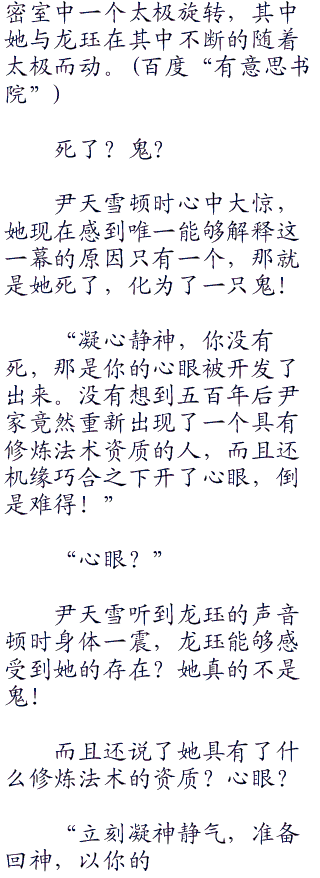 密室中一个太极旋转，其中
她与龙珏在其中不断的随着
太极而动。(百度“有意思书
院”)
死了？鬼？
尹天雪顿时心中大惊，
她现在感到唯一能够解释这
一幕的原因只有一个，那就
是她死了，化为了一只鬼！
“凝心静神，你没有
死，那是你的心眼被开发了
出来。没有想到五百年后尹
家竟然重新出现了一个具有
修炼法术资质的人，而且还
机缘巧合之下开了心眼，倒
是难得！”
“心眼？”
尹天雪听到龙珏的声音
顿时身体一震，龙珏能够感
受到她的存在？她真的不是
鬼！
而且还说了她具有了什
么修炼法术的资质？心眼？
“立刻凝神静气，准备
回神，以你的